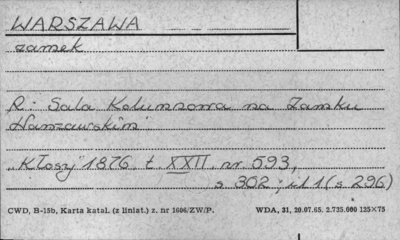 WARSZAWA
zamek
R: Sala Kolumnowa na Zamku
Warszawskim
"Kłosy" 1876. t. XXII, nr 593,
s 302; il 1 (s 296)
CWD, B-15b, Karta katal. (z liniat.) z. nr 1606/ZW/P. WDA, 31, 20.07.65. 2.735.000 125×75